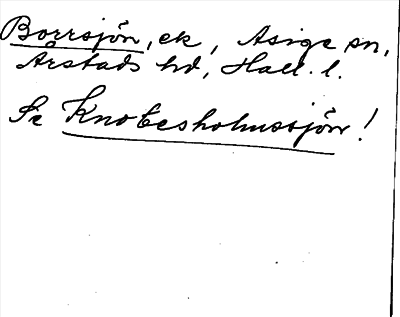 Borrsjön, ek, Asige sn,
Årstads hd, Hall. l.
Se Knobesholmssjön!